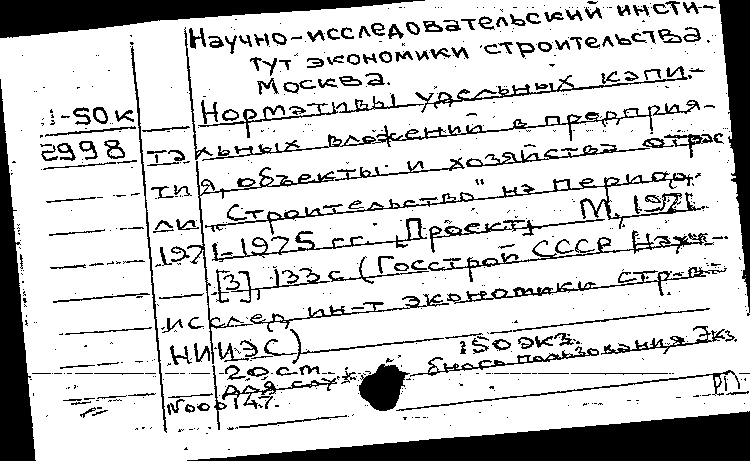 Научно-исследовательский инсти-
тут экономики строительства.
Москва.
Нормативы удельных капи-
-50к
2998
тальных вложений в предприя-
тия, объекты и хозяйства отрас
ли „Строительство" на период
1971-1975 гг. [Проект] М, 1971.
[3], 133 с (Госстрой СССР Науч-
исслед. ин-т экономики стр-ва
НИИЭС)
20 см. 150 экз.
Для служебного пользования, Экз
N000147.
РП